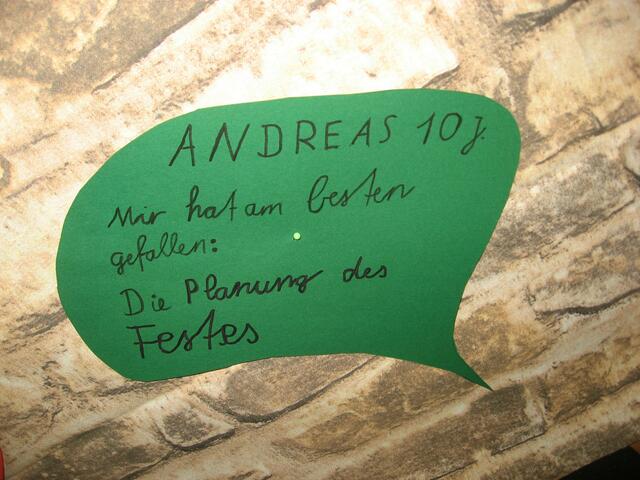 ANDREAS 10 J.
Mir hat am besten
gefallen:
Die Planung des
Festes